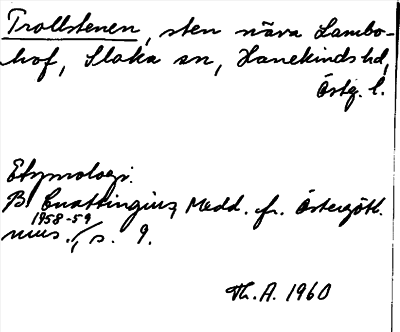 Trollstenen, sten nära Lambo-
hof, Slaka sn, Hanekinds hd,
Östg. l.
Etymologi.
B Cnattingius, Medd. fr. Östergötl.
mus. 1958-59, s. 9.
Th. A. 1960